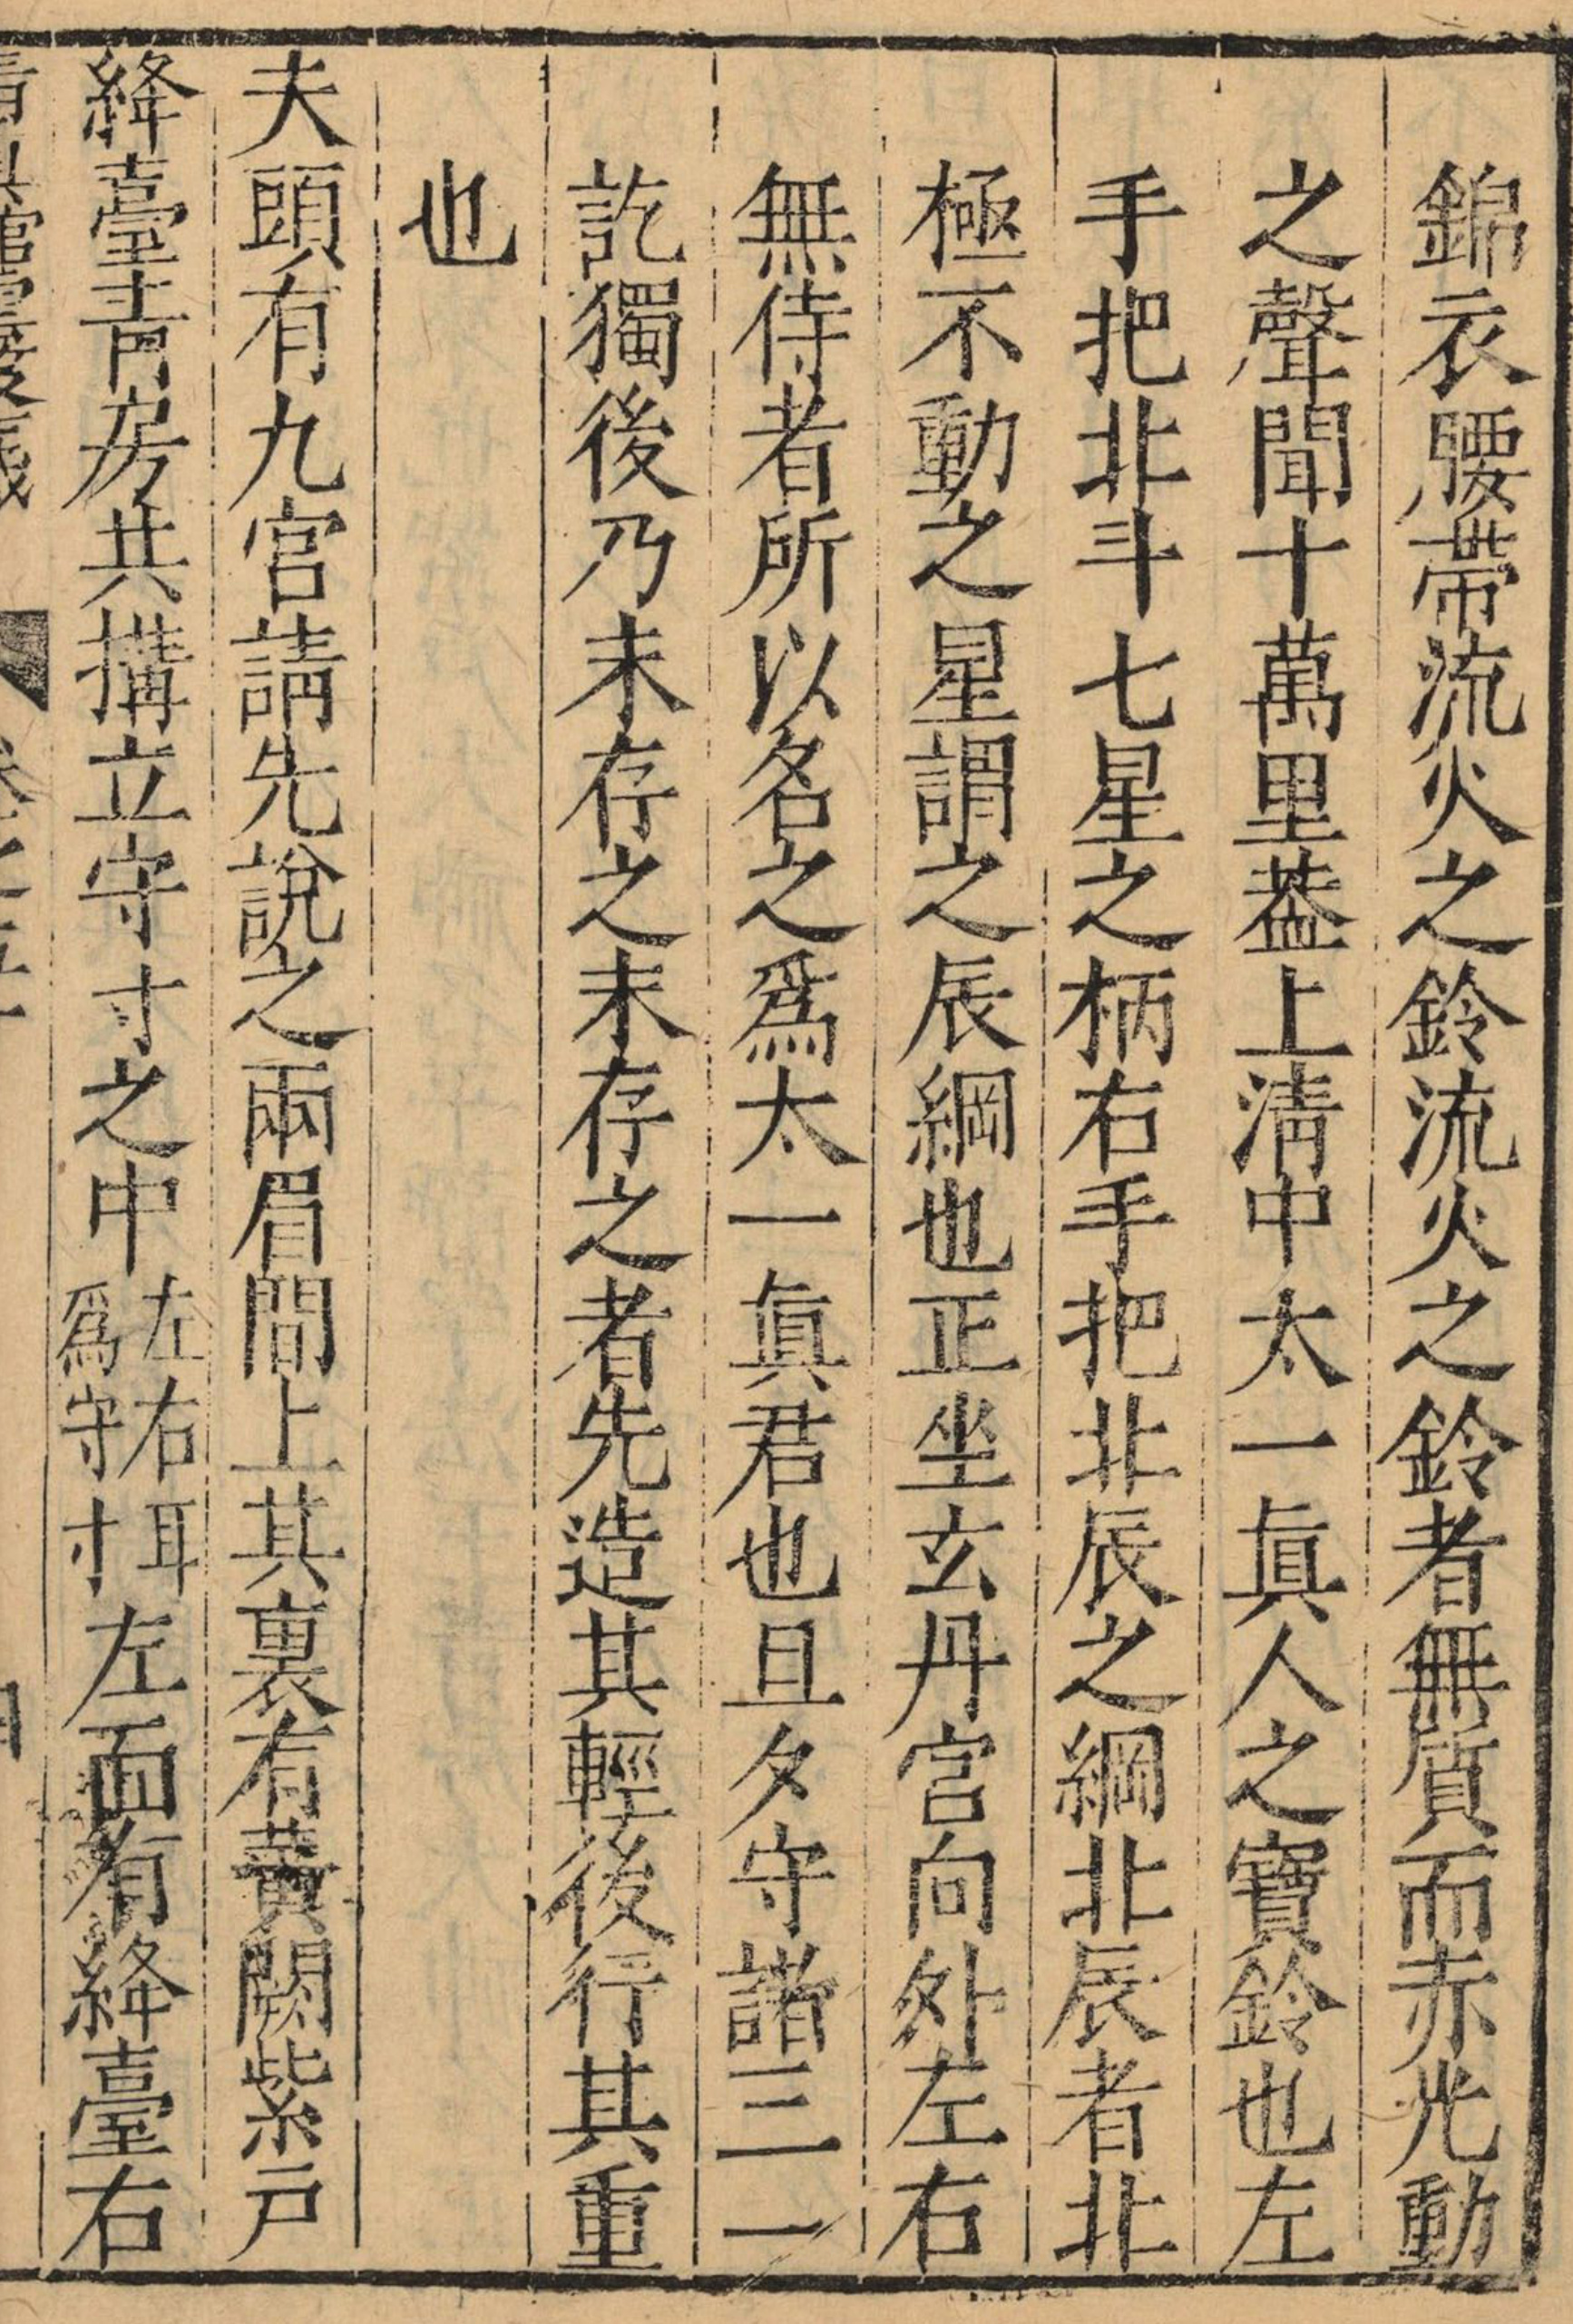 錦衣腰帶流火之鈴流火之鈴者無質而赤光動
之聲聞十萬里葢上淸中太一眞人之寶鈴也左
手把北斗七星之柄右手把北辰之綱北辰者北
極不動之星謂之辰綱也正坐玄丹宫向外左右
無侍者所以名之爲太一眞君也旦夕守諸三一
訖獨後乃末存之末存之者先造其輕後行其重
也
夫頭有九宫請先說之兩眉間上其裏有黃闕紫戸
絳臺青房共搆立守寸之中左右耳爲守寸左面有絳臺右